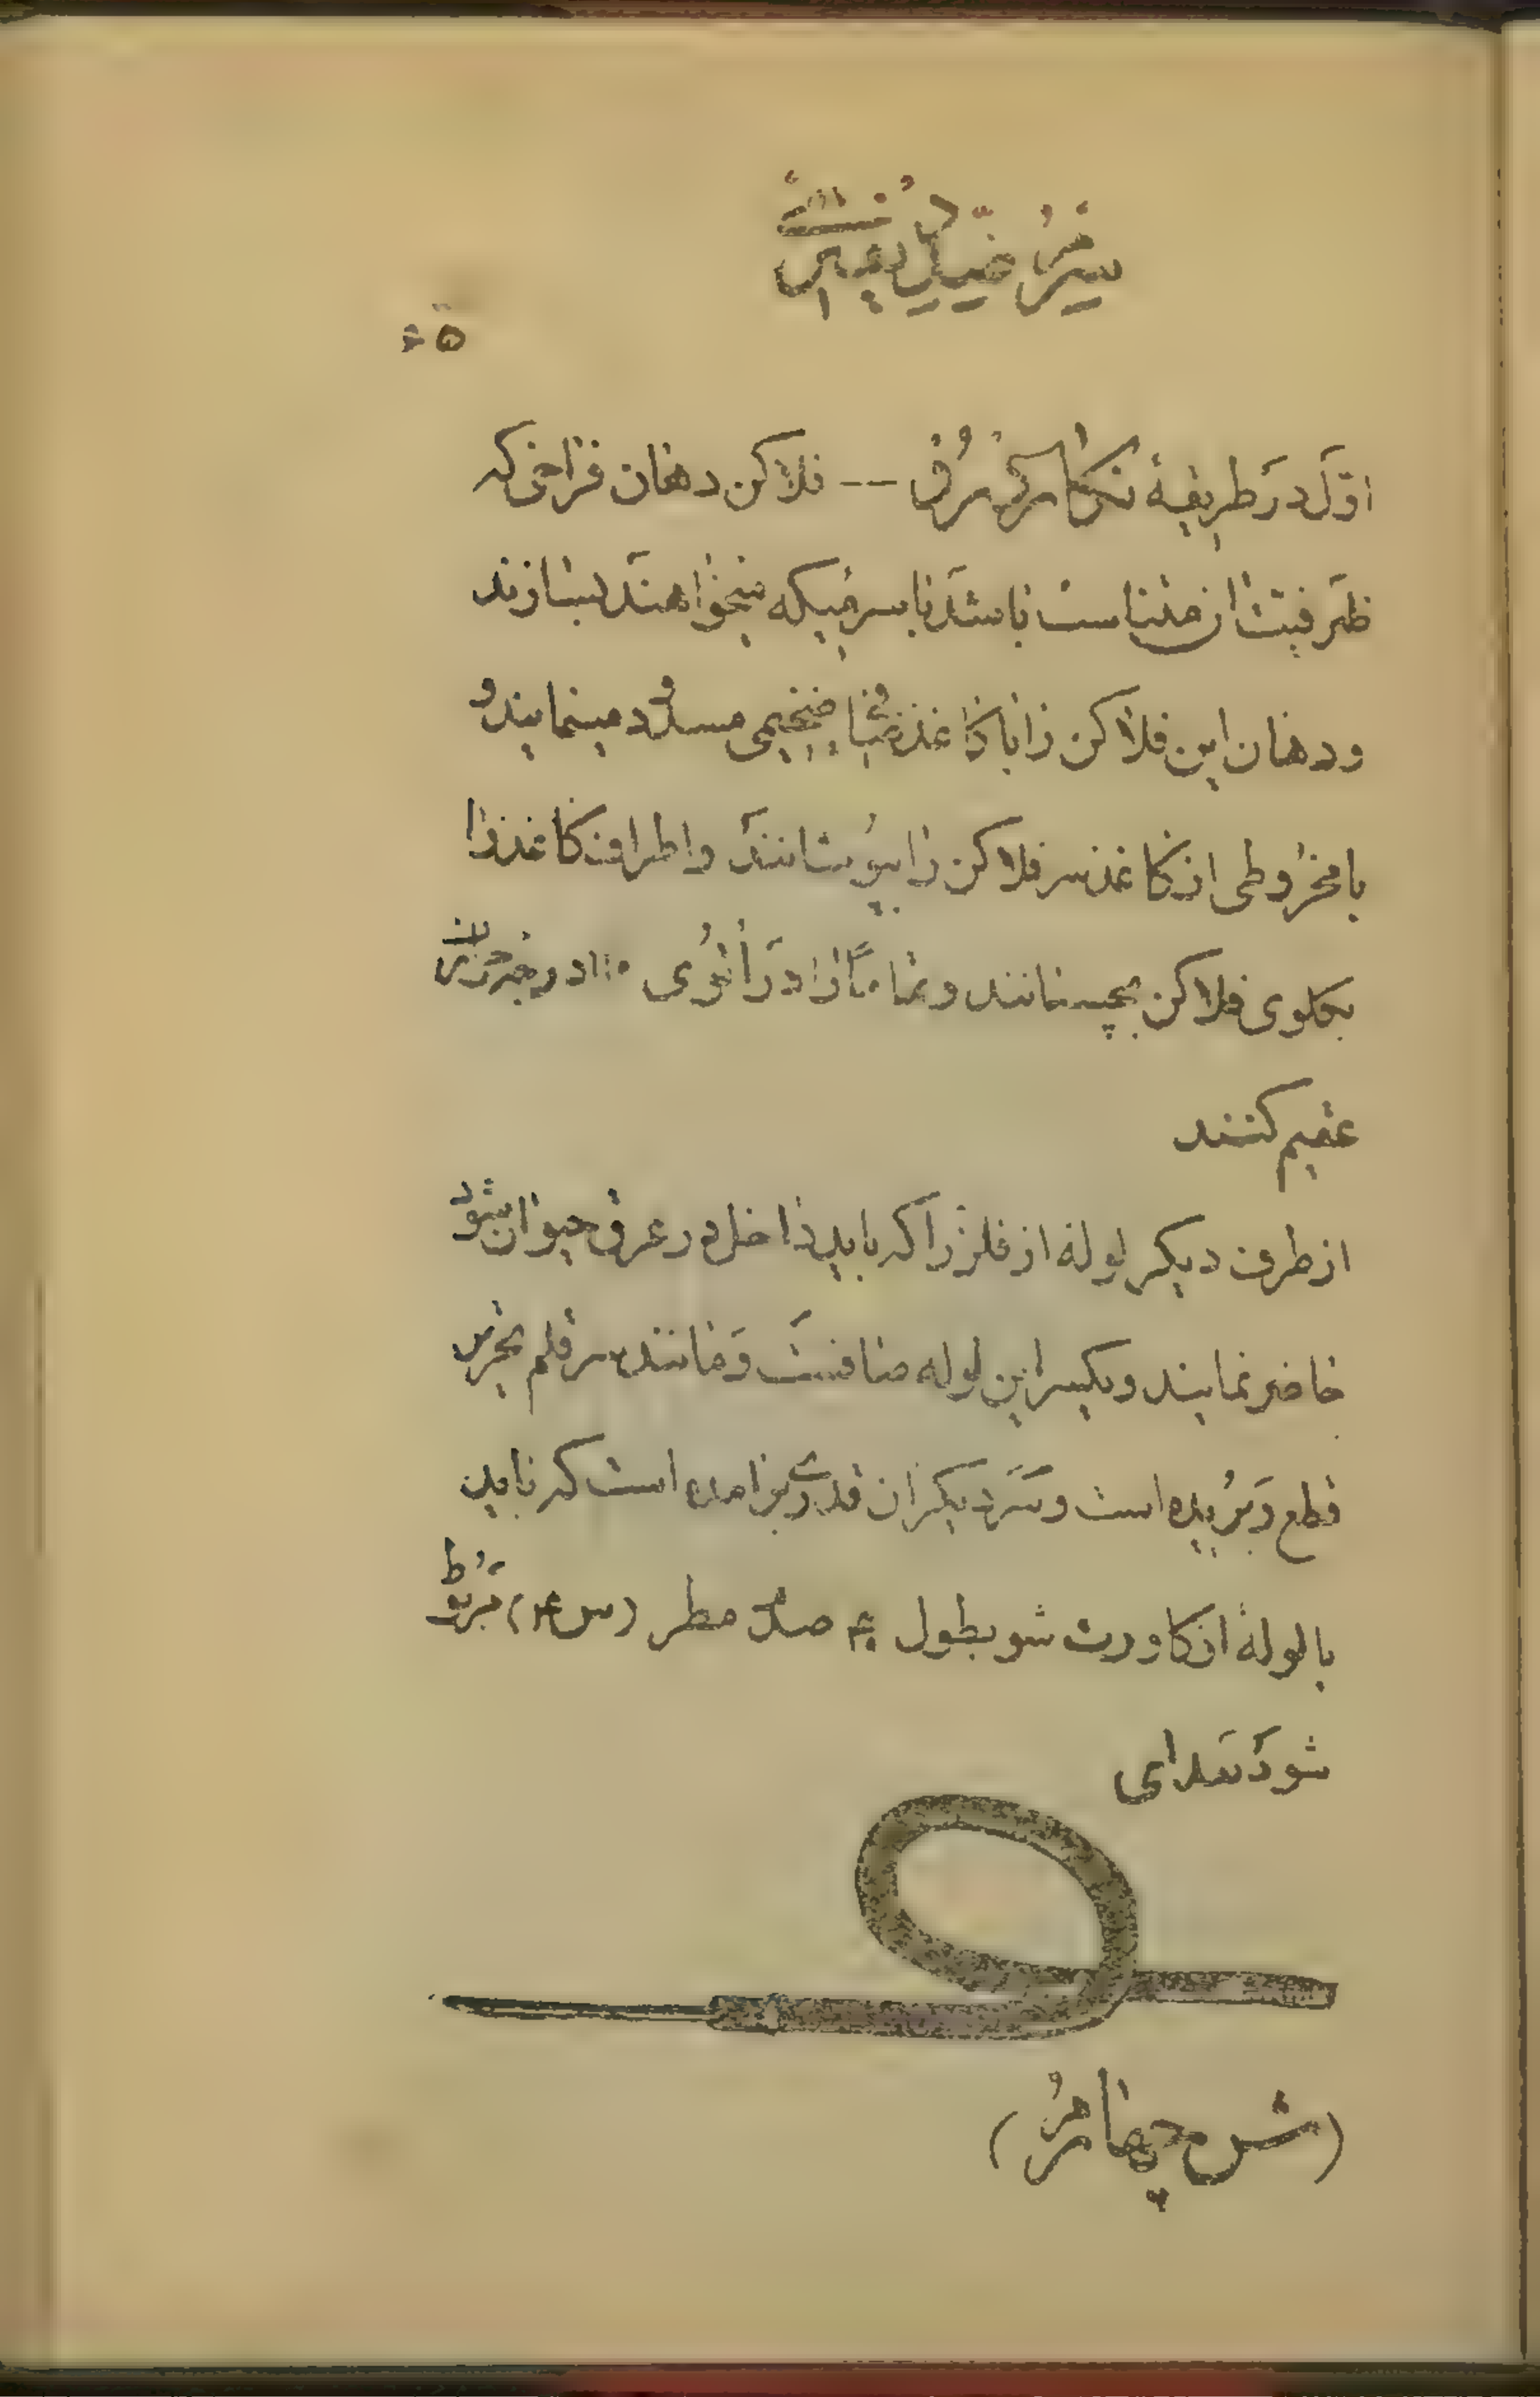 سرم ضد دیفتری
۴۵
اوّل در طریقهٔ نگاه سرم -- فلاکن دهان فراخی که
ظرفیت آن متناسب باشد با سرمیکه میخواهند بسازند
و دهان این فلاکن را با کاغذ ضخیمی مسدود مینمایند و
با مخروطی از کاغذ سر فلاکن را بپوشانند و اطراف کاغذ را
بگلوی فلاکن بچسبانند و تماماً را در اتوی ۱۱۰ درجه
عقیم کنند
از طرف دیگر لوله از فلز را که باید داخل در عرق حیوان شود
حاضر نمایند و یکسر این لوله صافست و مانند سر قلم تحریر
قطع و بریده است و سر دیگر آن قدری برآمده است که باید
با لولهٔ از کاوورت شو بطول ۴۰ صدم مطر (ش ۴) مربوط
شود
(ش چهارم)